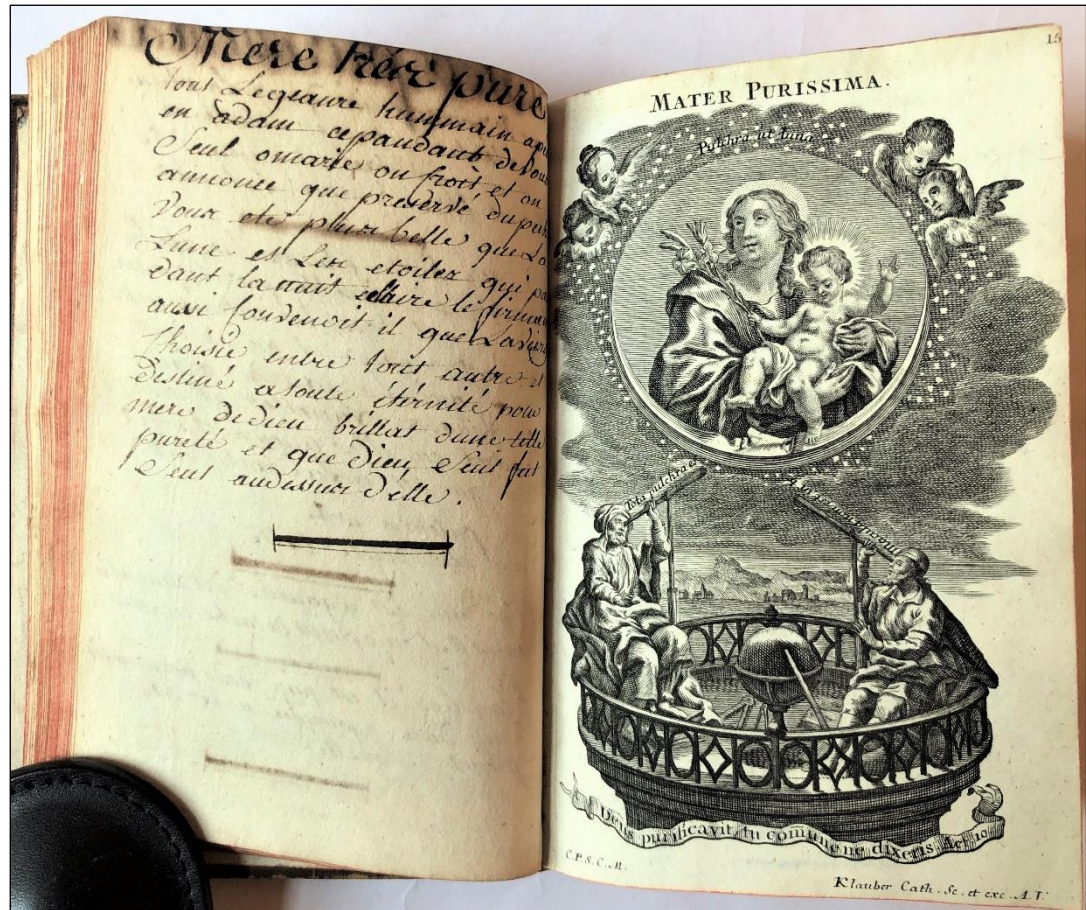 Mere trés pure
tout Legeanre hummain apu
en adam cepandant de Vous
Seul omarie on croit et on
annonce que preservé du peché
Vour ete plus belle que La
Lune et Les etoilez qui pa
dant la nuit eclaire le firma
aussi Convenoit il que La vier
Choisie entre tout autre et
destiné a toute éternité pour
mere de dieu brillat dune telle
pureté et que Dieu Seul fut
Seul audessus d'elle.
15
MATER PURISSIMA.
Pulchra ut luna
Tota pulchra es
Deus purificavit, tu comune ne dixeris Act. 10
C.P.S.C.M.
Klauber Cath. Sc. et exc. A.V.